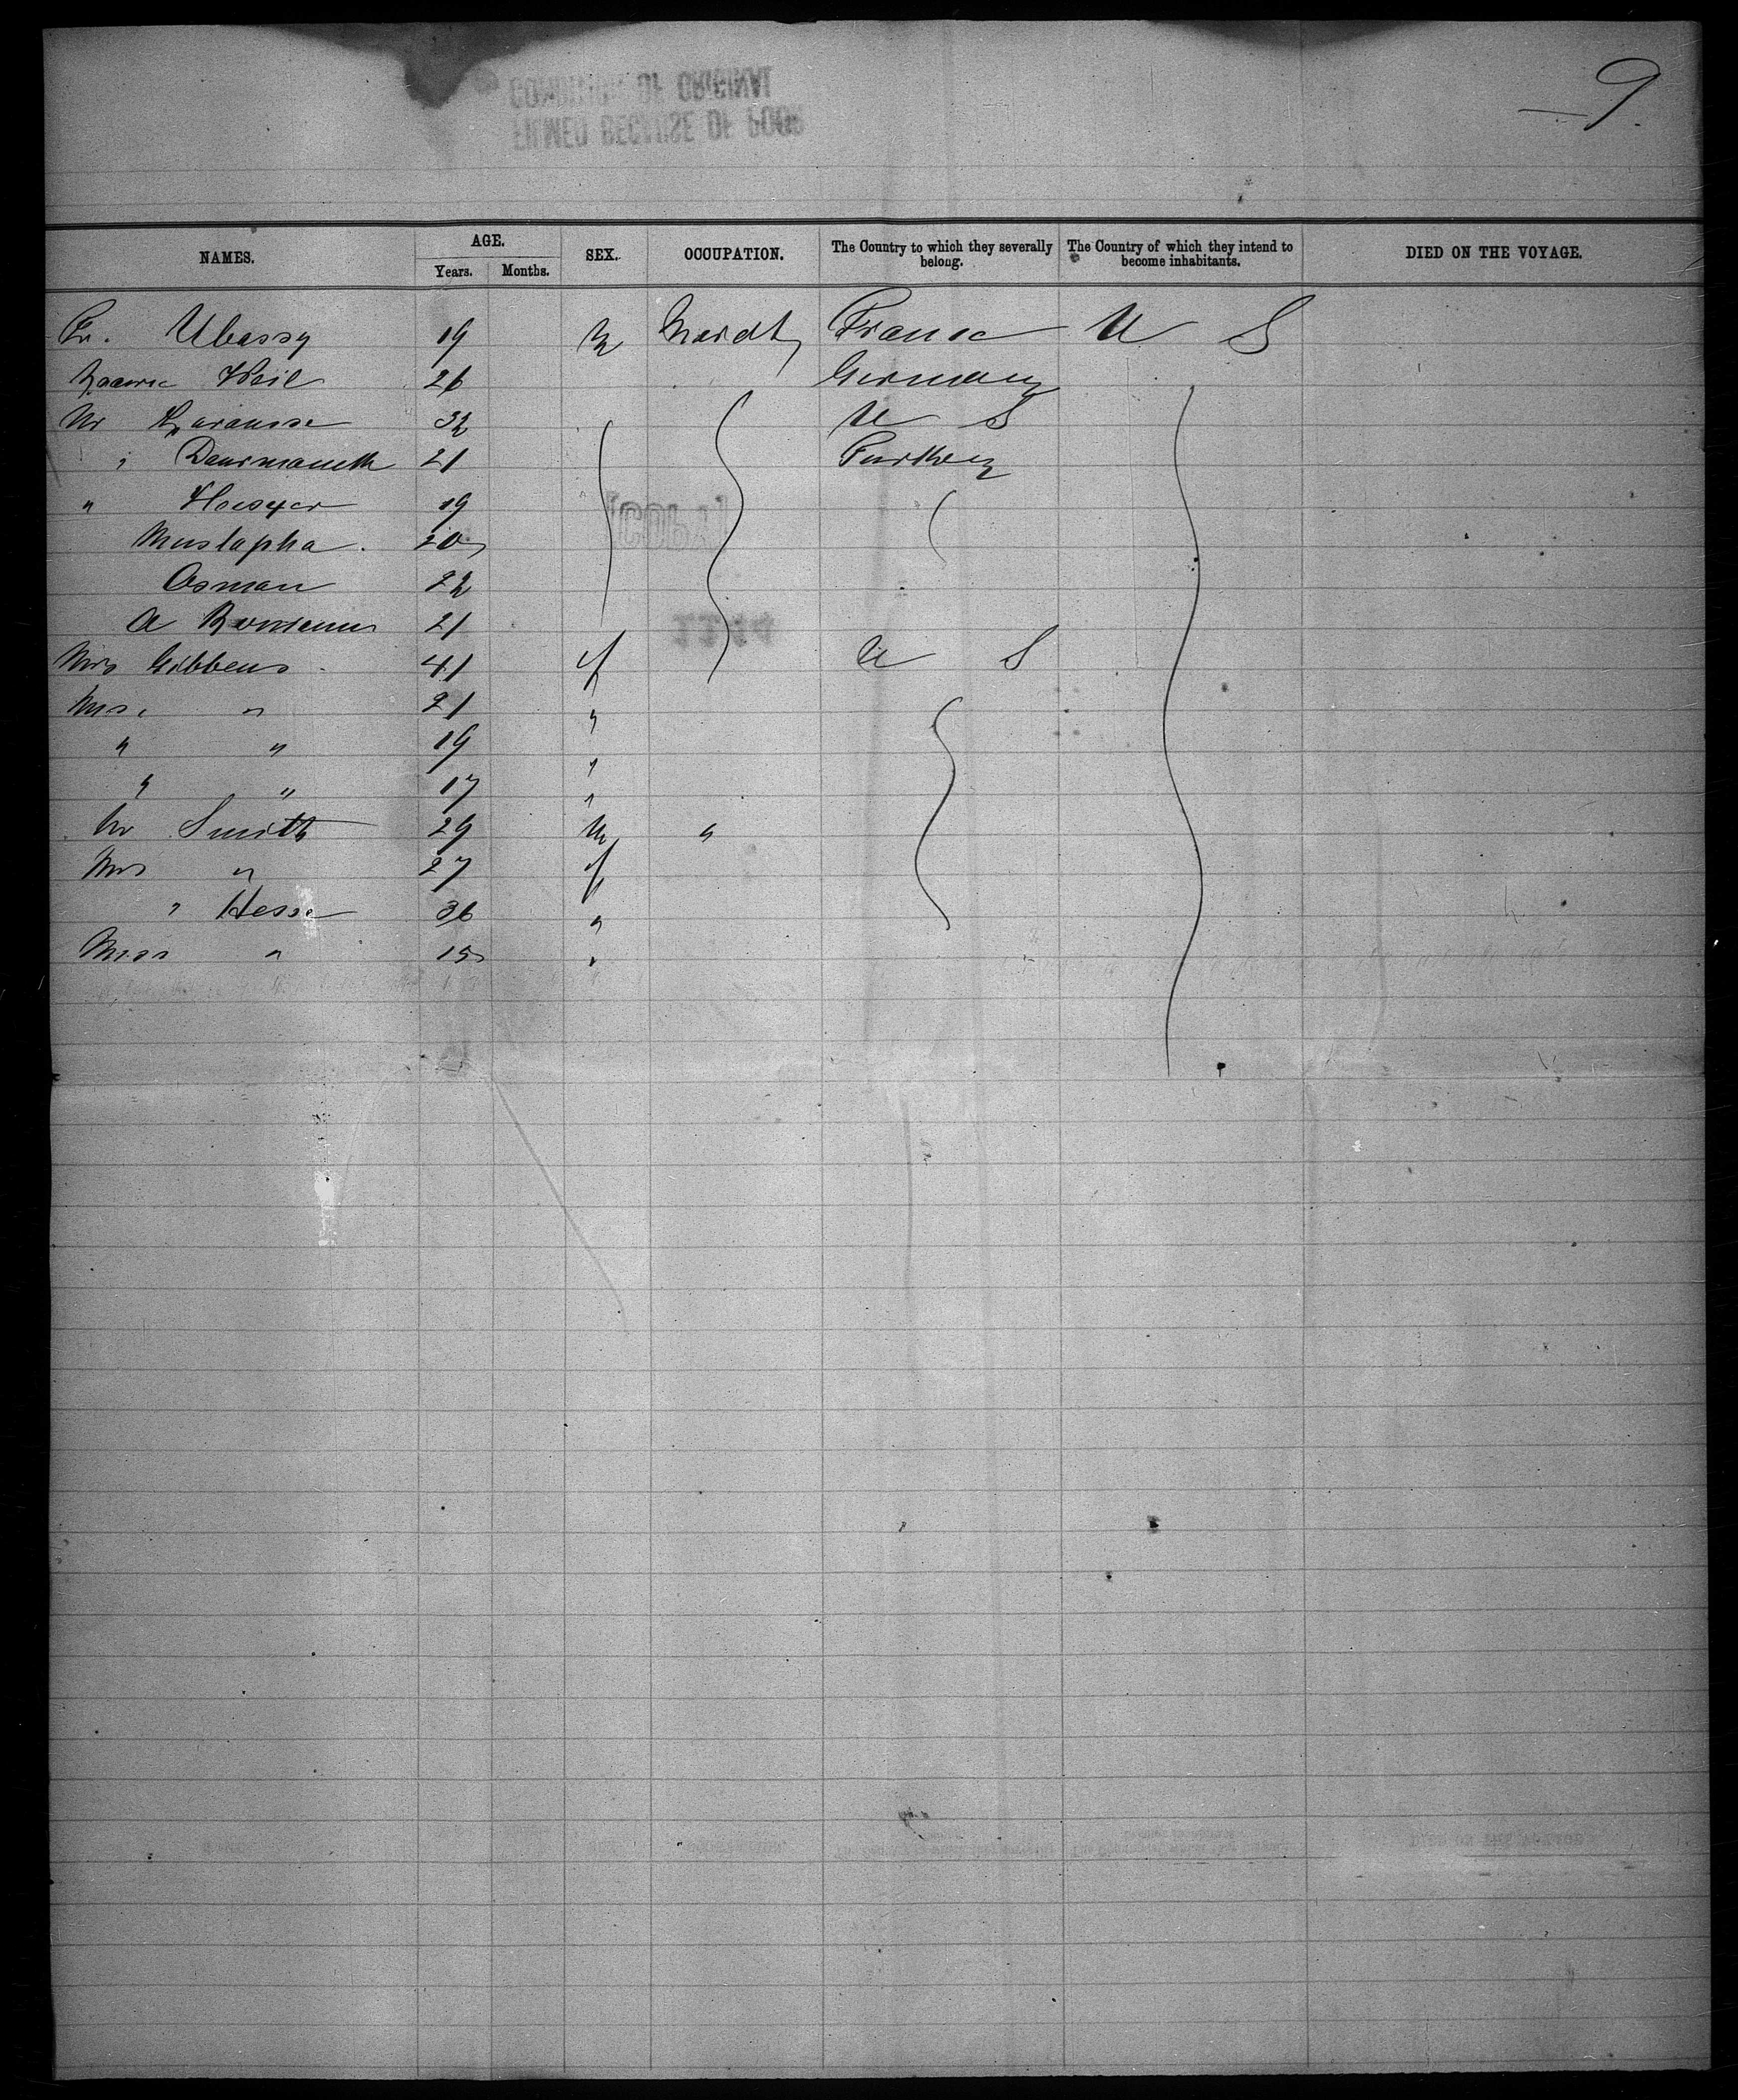 9.
NAMES. AGE. SEX. OCCUPATION. The Country to which they severally belong. The Country of which they intend to become inhabitants. DIED ON THE VOYAGE.
Years. Months.
Fr. Ubassy 19 M France U S
Weil 26 Germany
Mr 32 U S
" 21 Turkey
" 19
Mustapha. 20
Osman 22
A 21
Mrs Gibbens 41 f U S
Miss " 21 "
" " 19 "
" " 17 "
Mr Smith 29 M "
Mrs " 27 f
" Hesse 36 "
Miss " 15 "